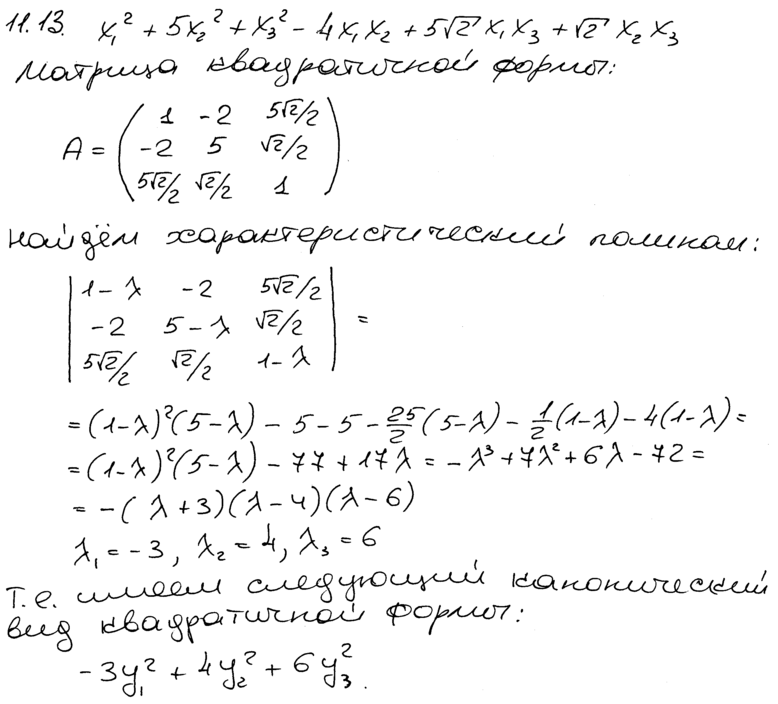 11.13. x₁² + 5x₂² + x₃² - 4x₁x₂ + 5√2 x₁x₃ + √2 x₂x₃
Матрица квадратичной формы:
A = ( 1 -2 5√2/2
-2 5 √2/2
5√2/2 √2/2 1 )
Найдём характеристический полином:
| 1-λ -2 5√2/2 |
| -2 5-λ √2/2 | =
| 5√2/2 √2/2 1-λ |
= (1-λ)²(5-λ) - 5 - 5 - 25/2 (5-λ) - 1/2 (1-λ) - 4(1-λ) =
= (1-λ)²(5-λ) - 77 + 17λ = -λ³ + 7λ² + 6λ - 72 =
= -(λ+3)(λ-4)(λ-6)
λ₁ = -3, λ₂ = 4, λ₃ = 6
Т.е. имеем следующий канонический
вид квадратичной формы:
-3y₁² + 4y₂² + 6y₃².